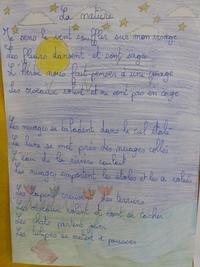 La nature
Je sens le vent souffler sur mon visage
Les fleurs dansent et sont sages
L'herbe nous fait penser à une image
Les oiseaux volent et ne sont pas en cage
Les nuages se baladent dans le ciel étoilé
La lune se met près des nuages collés
L'eau de la rivière coulait
Les nuages emportent les étoiles et les
Les taupes creusent des terriers
Les oiseaux volent et vont se cacher
Les chats partent jouer
Les tulipes se mettent à pousser